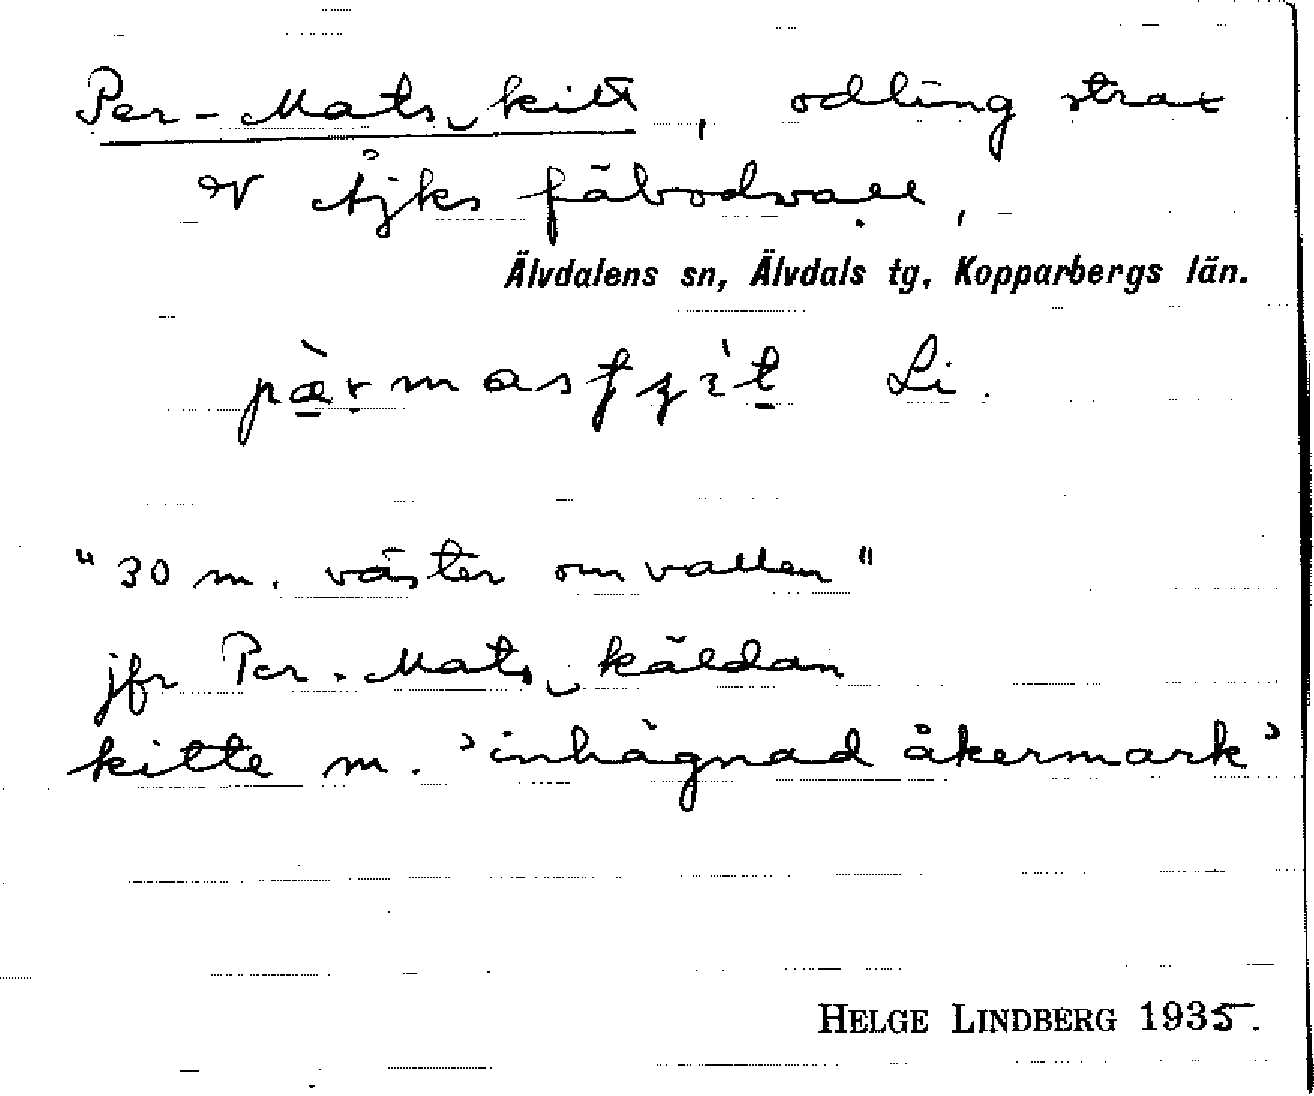 Per-Mats‿kitt, odling strax
V Åjks fäbodvall,
Älvdalens sn, Älvdals tg, Kopparbergs län.
Li.
"30 m. väster om vallen"
jfr Per-Mats‿källdan
kitte m. 'inhägnad åkermark'
HELGE LINDBERG 1935.